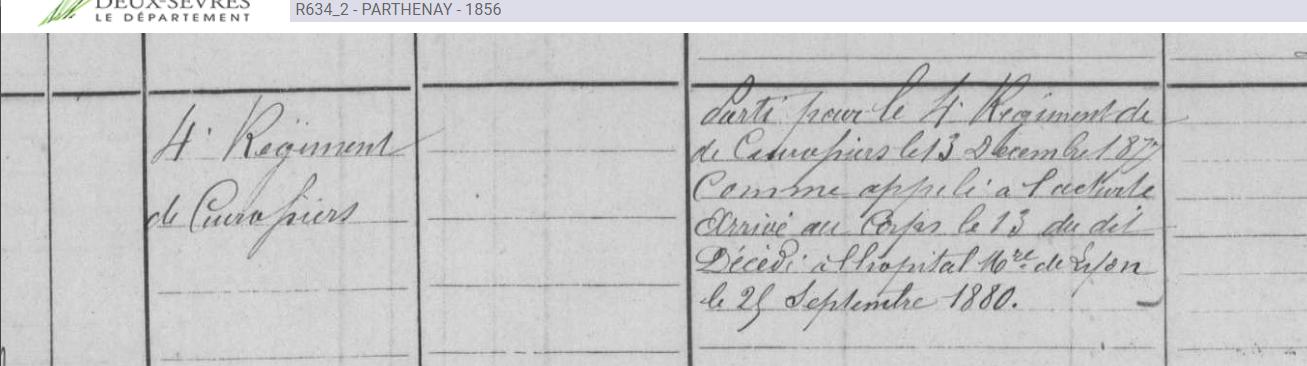 DEUX-SÈVRES
LE DÉPARTEMENT
R634_2 - PARTHENAY - 1856
4e Régiment
de Cuirassiers
Parti pour le 4e Régiment de
de Cuirassiers le 13 Décembre 1877
Comme appelé à l'activité
Arrivé au Corps le 13 du dit
Décédé à l'hopital Mre de Lyon
le 25 Septembre 1880.